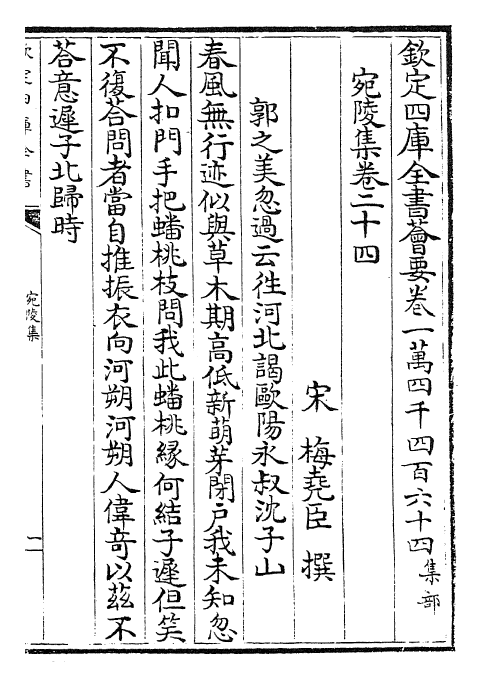 欽定四庫全書薈要卷一萬四千四百六十四集部
宛陵集卷二十四
宋　梅堯臣　撰
郭之美忽過云徃河北謁歐陽永叔沈子山
春風無行迹似與草木期高低新萌芽閉戸我未知忽
聞人扣門手把蟠桃枝問我此蟠桃緣何結子遲但笑
不復荅問者當自推振衣向河朔河朔人偉竒以兹不
荅意遲子北歸時
欽定四庫全書
宛陵集
一